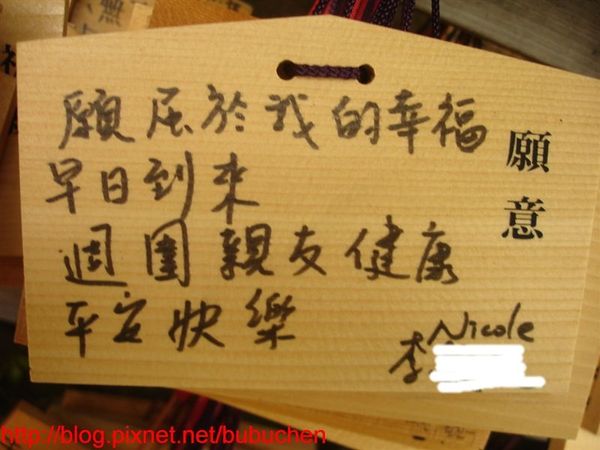 願屬於我的幸福
早日到來
週圍親友健康
平安快樂
願意
Nicole
李
http://blog.pixnet.net/bubuchen